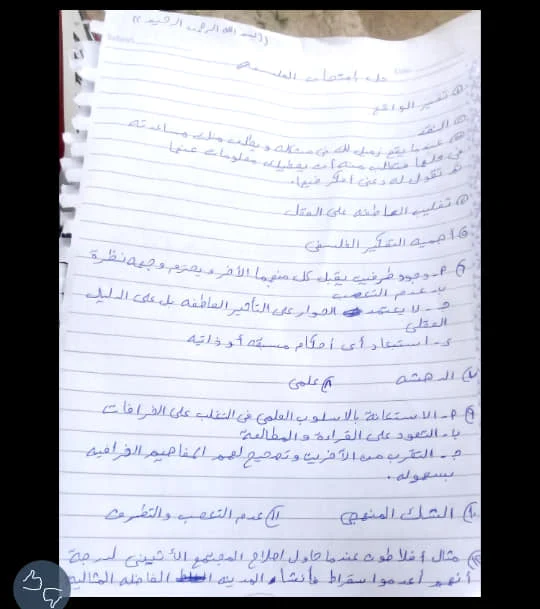 ((بسم الله الرحمن الرحيم))
حل امتحان الفلسفة
① تفسير الواقع
② النقد
③ عندما يقع زميل لك في مشكلة ويطلب منك مساعدته
في حلها فتطلب منه أن يعطيك معلومات عنها
ثم تقول له دعني أفكر فيها.
تغليب العاطفه على العقل
أهمية التفكير الفلسفي
٦) ٢- وجود طرفين يقبل كل منهما الأخر ويحترم وجهة نظرة
ب- عدم التعصب
جـ- لا يعتمد الحوار على التأثير العاطفه بل على الدليل
العقلي
د- استبعاد أى أحكام مسبقه أو ذاتيه
٧) الدهشه ٨) علمى
٩) ٢- الاستعانة بالاسلوب العلمى في التغلب على الخرافات
ب- التعود على القراءة والمطالعة
جـ- التقرب من الآخرين وتصحيح لهم المفاهيم الخرافيه
بسهوله.
١٠) الشك المنهجي ١١) عدم التعصب والتطرف
١٢) مثال أفلاطون عندما حاول اصلاح المجتمع الأثينى لدرجة
أنهم أعدموا سقراط فأنشأ المدينه الفاضله المثاليه